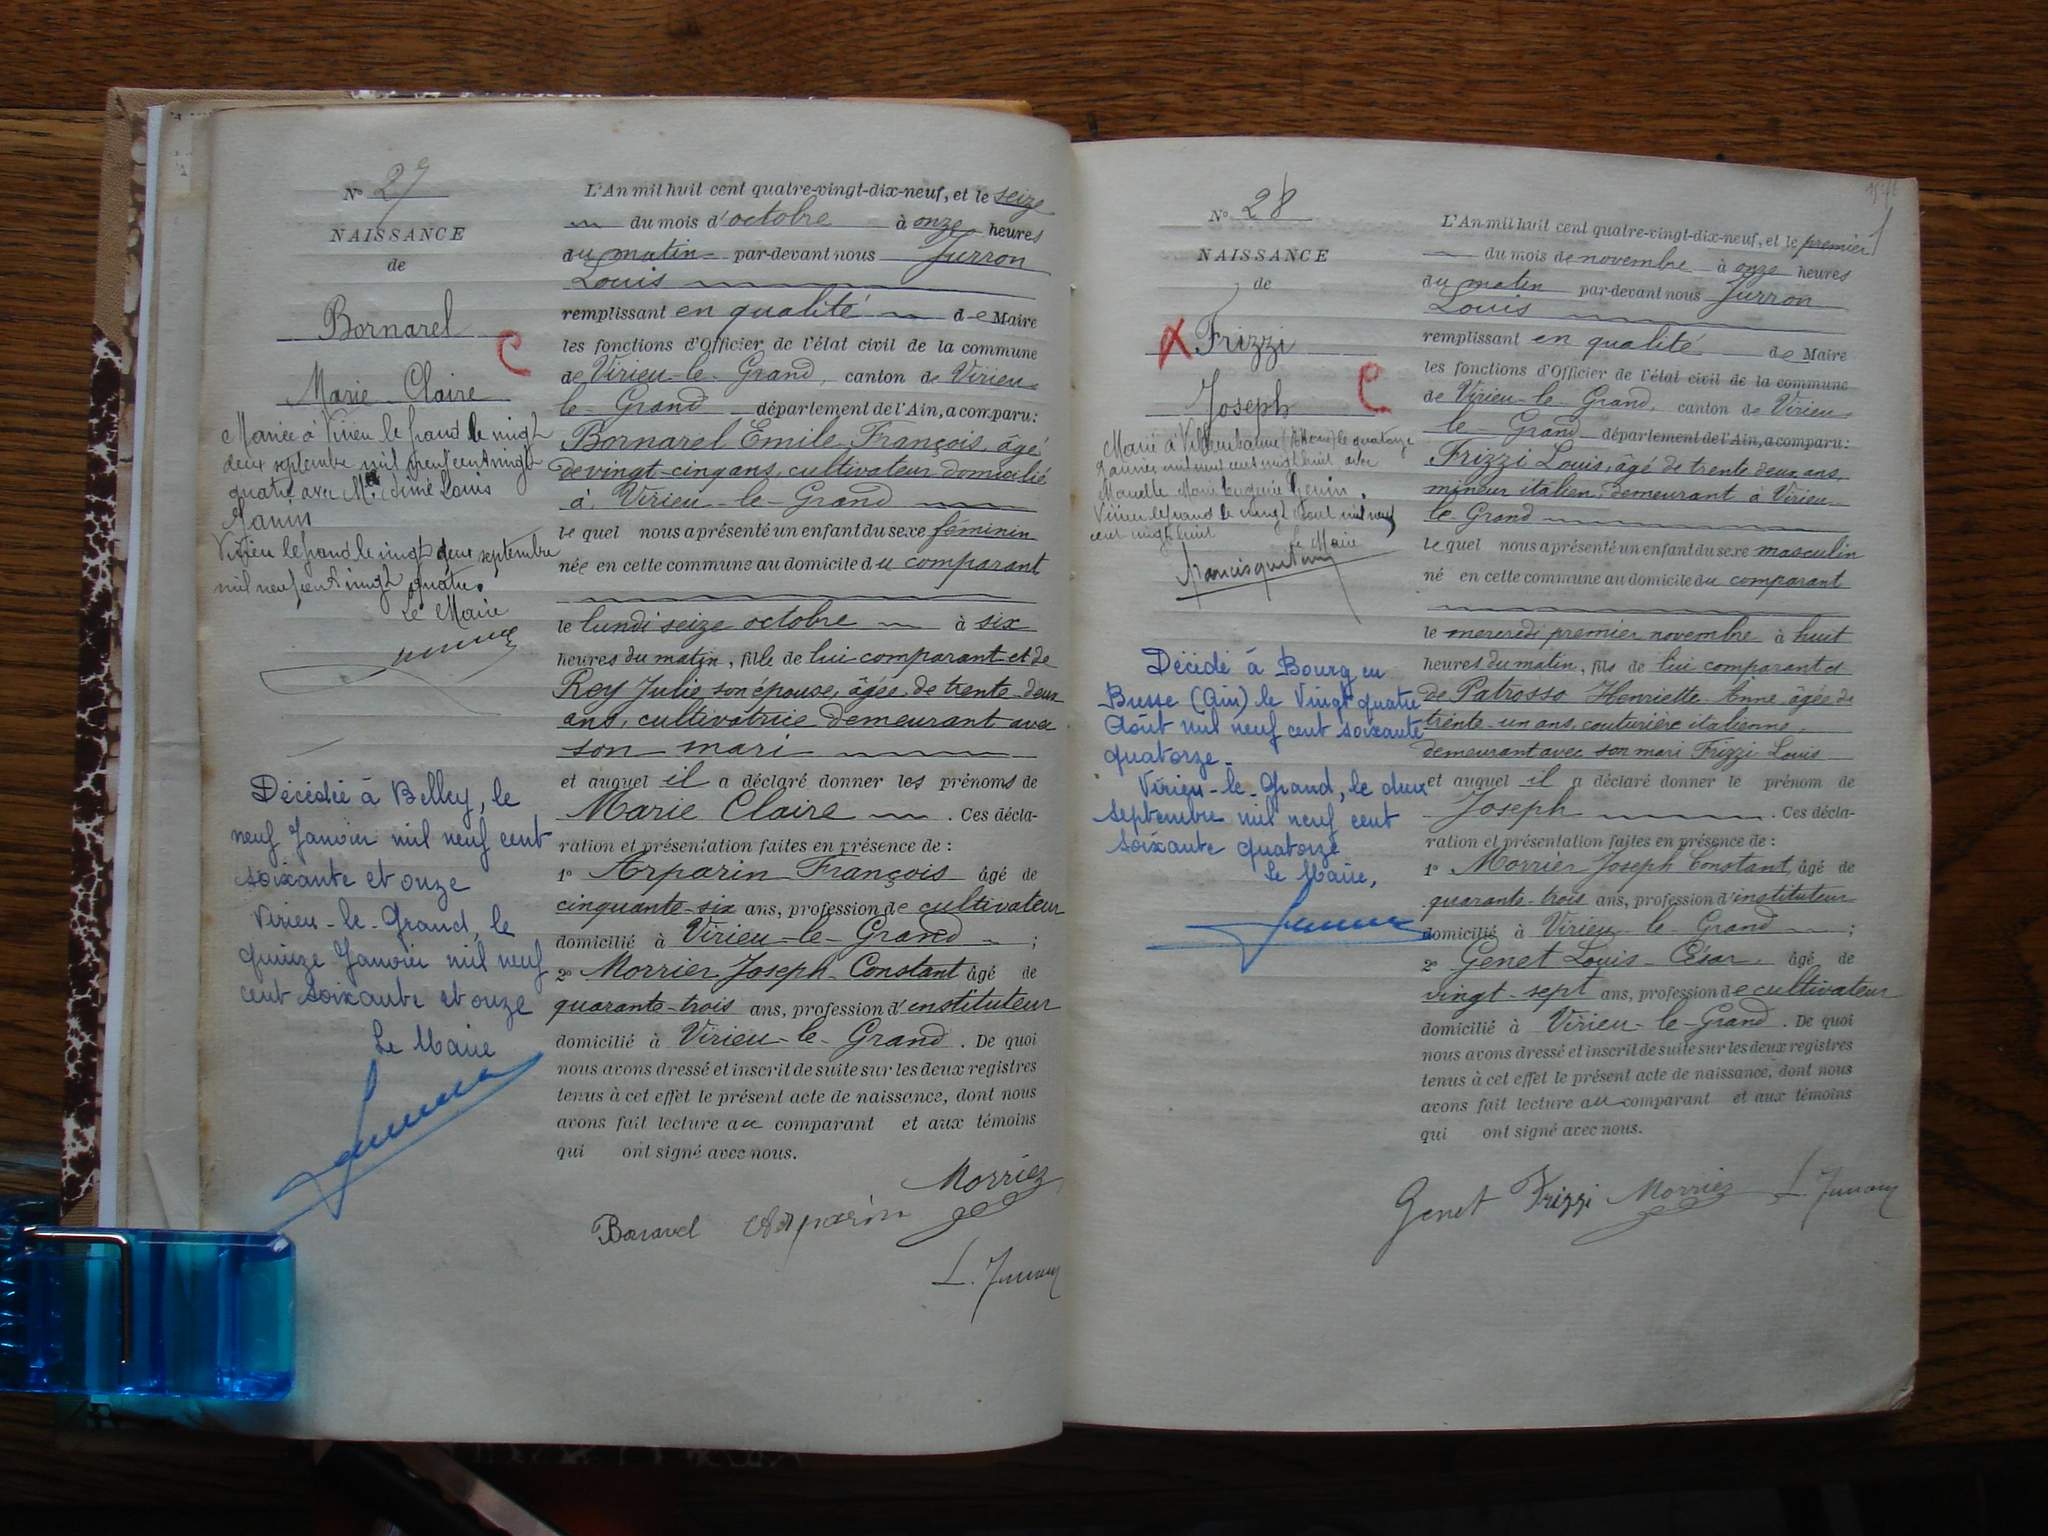 N° 27
NAISSANCE
de
Bornarel
C
Marie Claire
Mariée à Virieu le Grand le vingt
deux septembre mil neuf cent vingt
quatre avec Mr Aimé Louis
Janin
Virieu le Grand le vingt deux septembre
mil neuf cent vingt quatre.
Le Maire
Décédée à Belley, le
neuf Janvier mil neuf cent
soixante et onze
Virieu-le-Grand, le
quinze Janvier mil neuf
cent soixante et onze
Le Maire
L'An mil huit cent quatre-vingt-dix-neuf, et le seize
du mois d'octobre à onze heures
du matin par-devant nous Jurron
Louis
remplissant en qualité de Maire
les fonctions d'Officier de l'état civil de la commune
de Virieu-le-Grand, canton de Virieu-
le-Grand département de l'Ain, a comparu:
Bornarel Emile François, âgé
de vingt-cinq ans, cultivateur domicilié
à Virieu-le-Grand
lequel nous a présenté un enfant du sexe féminin
née en cette commune au domicile du comparant
le lundi seize octobre à six
heures du matin, fille de lui comparant et de
Rey Julie, son épouse, âgée de trente-deux
ans, cultivatrice demeurant avec
son mari
et auquel il a déclaré donner les prénoms de
Marie Claire. Ces décla-
ration et présentation faites en présence de :
1° Arparin François âgé de
cinquante-six ans, profession de cultivateur
domicilié à Virieu-le-Grand ;
2° Morrier Joseph Constant âgé de
quarante-trois ans, profession d'instituteur
domicilié à Virieu-le-Grand. De quoi
nous avons dressé et inscrit de suite sur les deux registres
tenus à cet effet le présent acte de naissance, dont nous
avons fait lecture au comparant et aux témoins
qui ont signé avec nous.
Morrier
Bornarel Arparin
L. Jurron
N° 28
NAISSANCE
de
X Frizzi
C
Joseph
Marié à Villeurbanne (Rhône) le quatorze
janvier mil neuf cent vingt huit avec
Marcelle Marie Eugénie
Virieu le Grand le vingt Aout mil neuf
cent vingt huit
le Maire
Décédé à Bourg en
Bresse (Ain) le Vingt quatre
Août mil neuf cent soixante
quatorze.
Virieu-le-Grand, le deux
septembre mil neuf cent
soixante quatorze
Le Maire,
L'An mil huit cent quatre-vingt-dix-neuf, et le premier
du mois de novembre à onze heures
du matin par-devant nous Jurron
Louis
remplissant en qualité de Maire
les fonctions d'Officier de l'état civil de la commune
de Virieu-le-Grand, canton de Virieu-
le-Grand département de l'Ain, a comparu:
Frizzi Louis, âgé de trente deux ans,
mineur italien, demeurant à Virieu-
le-Grand
lequel nous a présenté un enfant du sexe masculin
né en cette commune au domicile du comparant
le mercredi premier novembre à huit
heures du matin, fils de lui comparant et
de Patrosso Henriette Anne âgée de
trente-un ans, couturière italienne,
demeurant avec son mari Frizzi Louis
et auquel il a déclaré donner le prénom de
Joseph. Ces décla-
ration et présentation faites en présence de :
1° Morrier Joseph Constant, âgé de
quarante-trois ans, profession d'instituteur
domicilié à Virieu-le-Grand ;
2° Genet Louis-César, âgé de
vingt-sept ans, profession de cultivateur
domicilié à Virieu-le-Grand. De quoi
nous avons dressé et inscrit de suite sur les deux registres
tenus à cet effet le présent acte de naissance, dont nous
avons fait lecture au comparant et aux témoins
qui ont signé avec nous.
Genet Frizzi Morrier L. Jurron